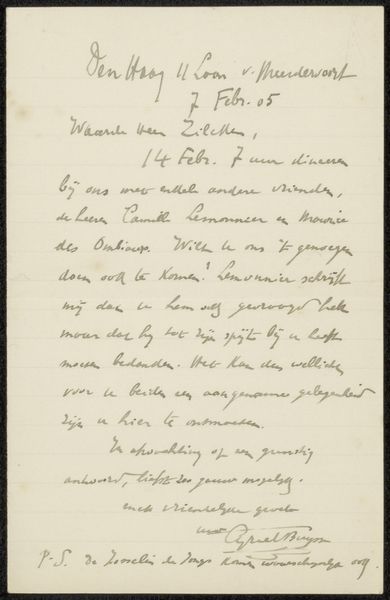 Den Haag 11 Laan v. Meerdervoort
7 Febr. 05
Waarde Heer Zilcken,
14 Febr. 7 uur dineeren
bij ons met enkele andere vrienden,
de heeren Camille Lemonnier en Maurice
des Ombiaux. Wilt u ons 't genoegen
doen ook te komen? Lemonnier schrijft
mij dat u hem ook gevraagd hebt
maar dat hij tot zijn spijt bij u heeft
moeten bedanken. Het kan dus wellicht
voor u beiden een aangename gelegenheid
zijn u hier te ontmoeten.
In afwachting of een gunstig
antwoord, liefst zoo gauw mogelijk.
met vriendelijke groeten
uw Cyriel Buysse
P.S. de Josselin de Jongs komen waarschijnlijk ook.